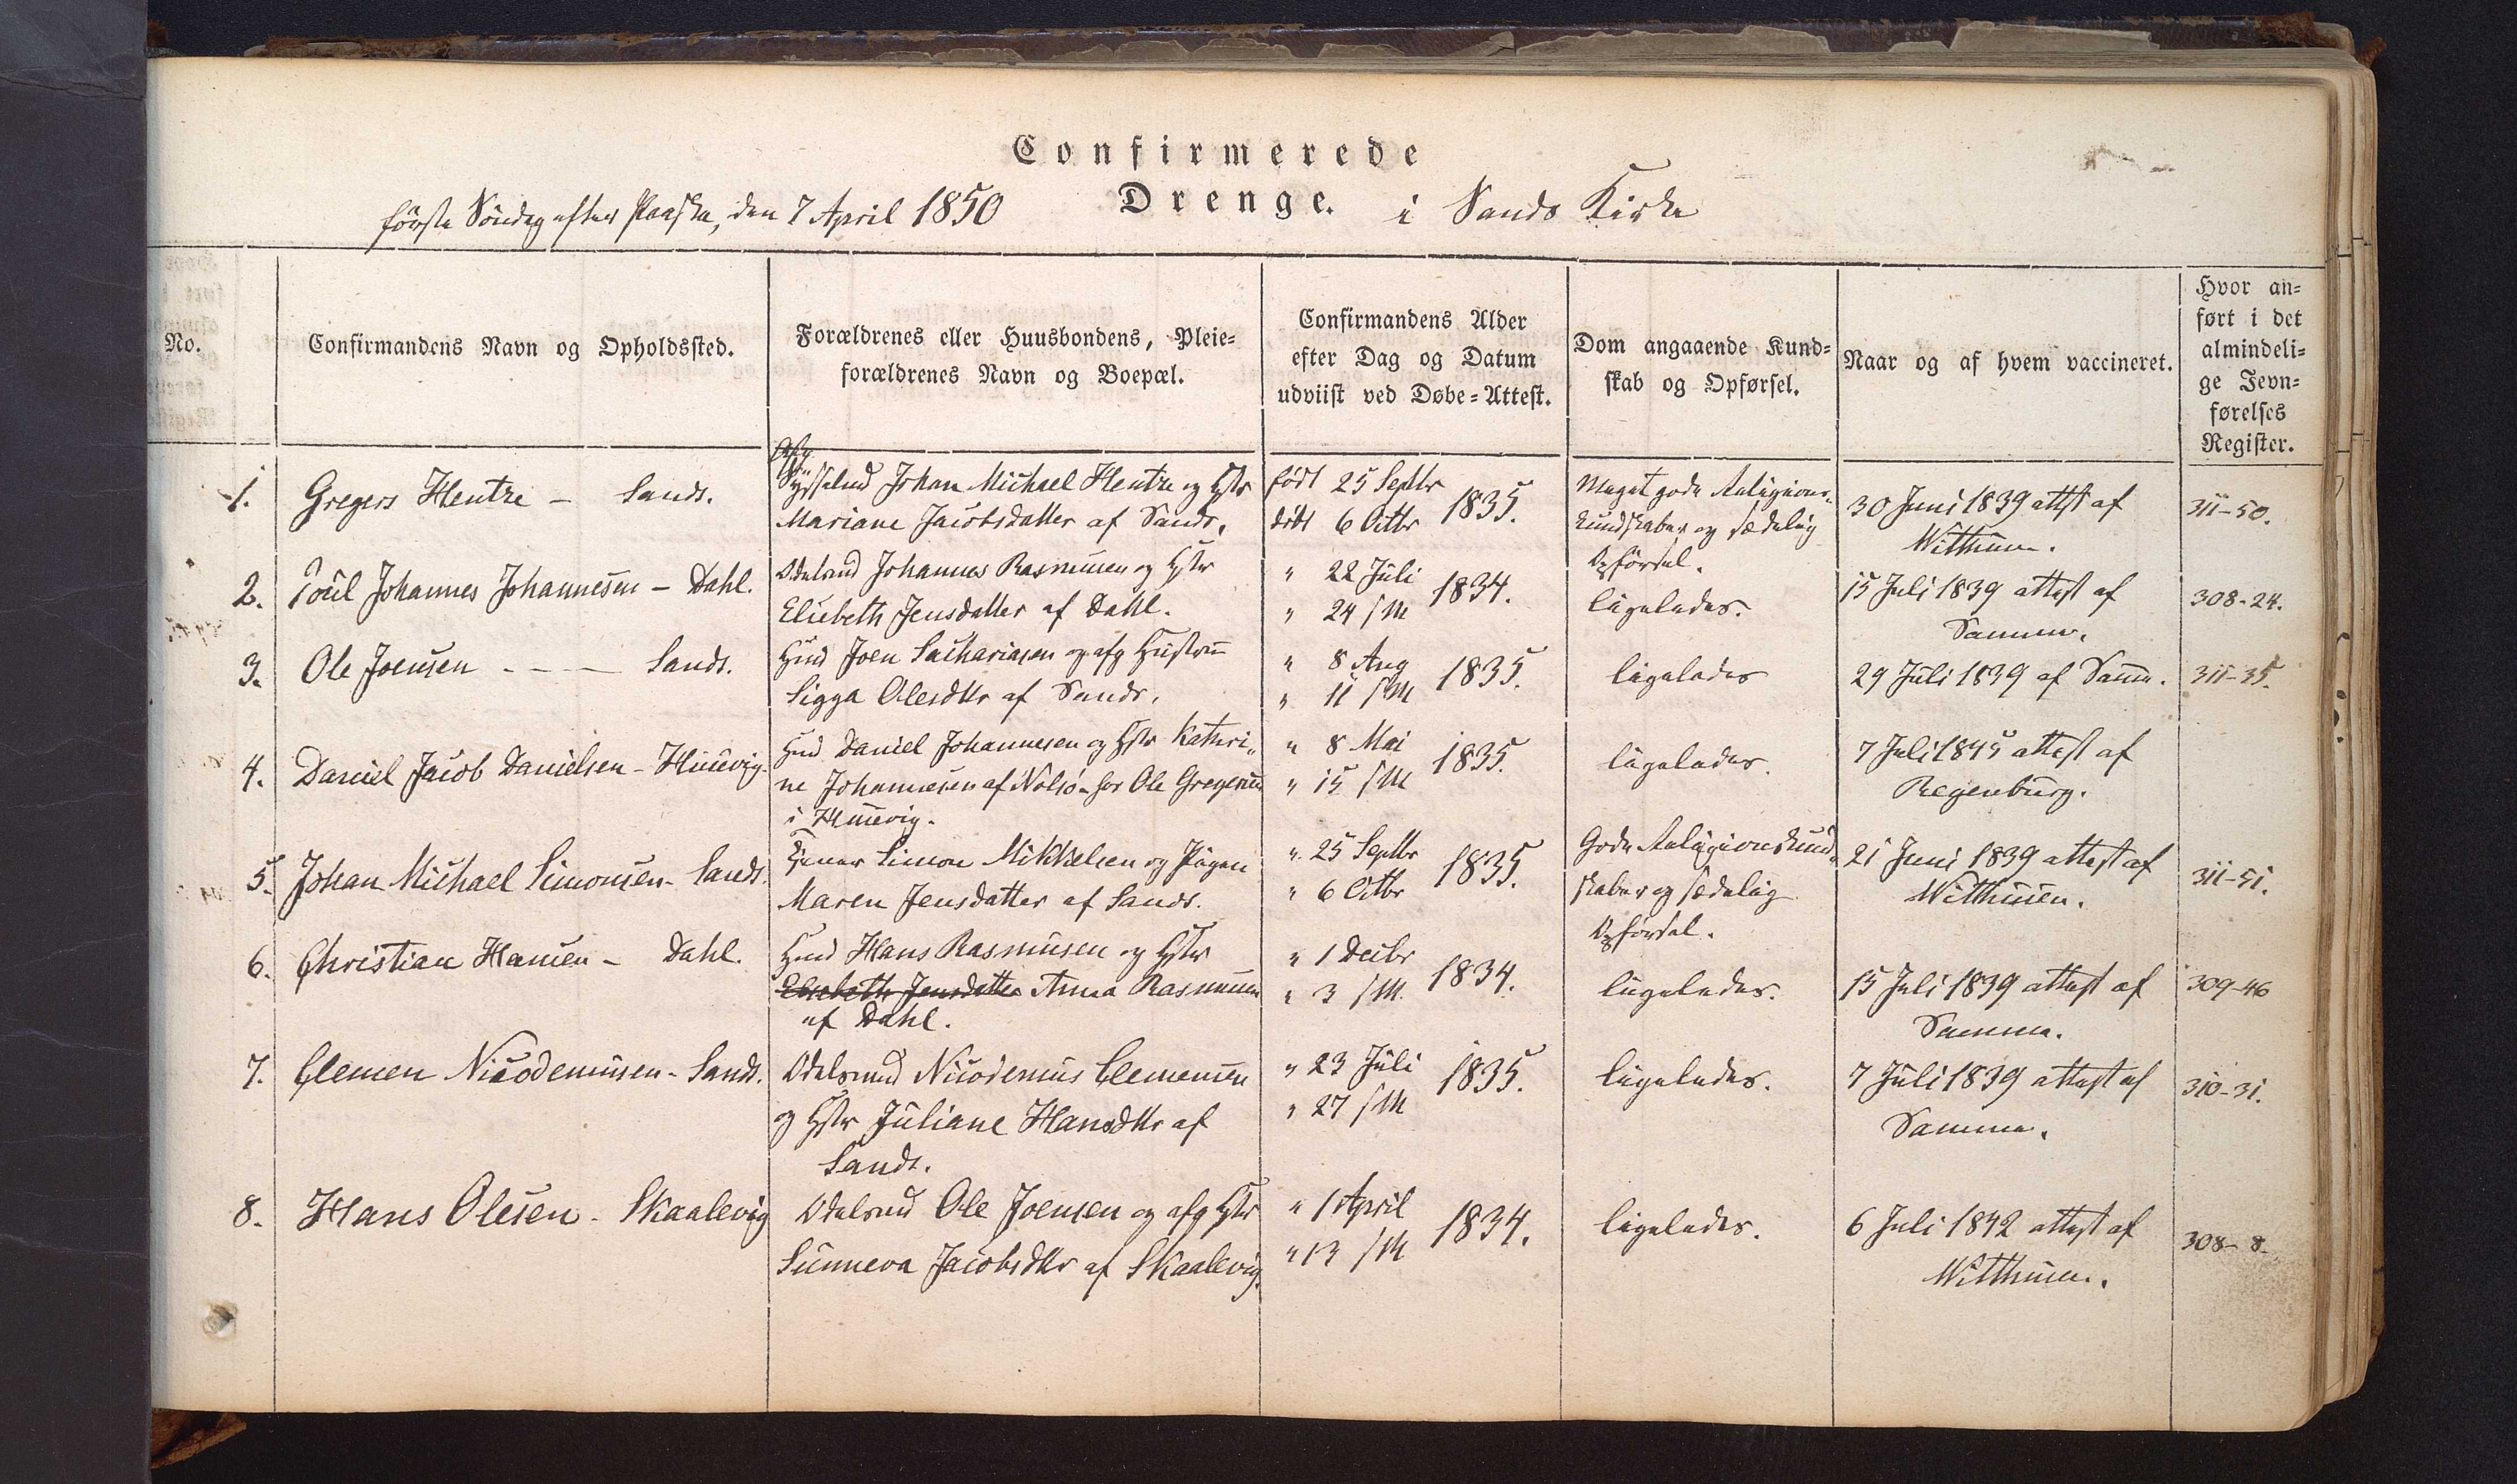 Confirmerede
Drenge.
første Søndag efter Paaske, den 7 April 1850
i Sands Kirke
No.
Confirmandens Navn og Opholdssted.
Forældrenes eller Huusbondens, Pleie=
forældrenes Navn og Boepæl.
Confirmandens Alder
efter Dag og Datum
udviist ved Døbe=Attest.
Dom angaaende Kund=
skab og Opførsel.
Naar og af hvem vaccineret.
Hvor an=
ført i det
almindeli=
ge Jevn=
førelses
Register.
1.
Gregers Hentze - Sands.
Afg
Sysselmd Johan Michael Hentze og Hstr
Mariane Jacobsdatter af Sands.
født 25 Septbr
døbt 6 Octbr 1835.
Meget gode Religions-
kundskaber og sædelig
Opførsel.
30 Juni 1839 attst af
Witthusen.
311-50.
2.
Poul Johannes Johannesen - Dahl.
Odelsmd Johannes Rasmusen og Hstr
Elsebeth Jensdatter af Dahl.
" 22 Juli
" 24 s M 1834.
ligeledes.
15 Juli 1839 attest af
Samme.
308-24.
3.
Ole Joensen - - - Sands.
Hmd Joen Sachariasen og afg Hustru
Sigga Olesdttr af Sands.
" 8 Aug
" 11 s M 1835.
ligeledes
29 Juli 1839 af Samm.
311-35.
4.
Daniel Jacob Danielsen - Husevig.
Hmd Daniel Johannesen og Hstr Kathri-
ne Johannesen af Nolsø - hos Ole Gregersen
i Husevig.
" 8 Mai
" 15 s M 1835.
ligeledes.
7 Juli 1845 attest af
Regenburg.
5.
Johan Michael Simonsen - Sands.
Tjener Simon Mikkelsen og Pigen
Maren Jensdatter af Sands.
" 25 Septbr
" 6 Octbr 1835.
Gode Religionskund-
skaber og sædelig
Opførsel.
21 Juni 1839 attest af
Witthusen.
311-51.
6.
Christian Hansen - Dahl.
Hmd Hans Rasmusen og Hstr
Elsebeth Jensdatter Anna Rasmusen
af Dahl.
" 1 Decbr
" 3 s M. 1834.
ligeledes.
15 Juli 1839 attest af
Samme.
309-46
7.
Clemen Nicodemusen - Sands.
Odelsmd Nicodemus Clemensen
og Hstr Juliane Hansdttr af
Sands.
" 23 Juli
" 27 s M 1835.
ligeledes.
7 Juli 1839 attest af
Samme.
310-31.
8.
Hans Olesen - Skaalevig
Odelsmd Ole Joensen og afg Hstr
Sunneva Jacobsdttr af Skaalevig.
" 1 April
" 13 s M 1834.
ligeledes.
6 Juli 1842 attest af
Witthusen.
308-8.